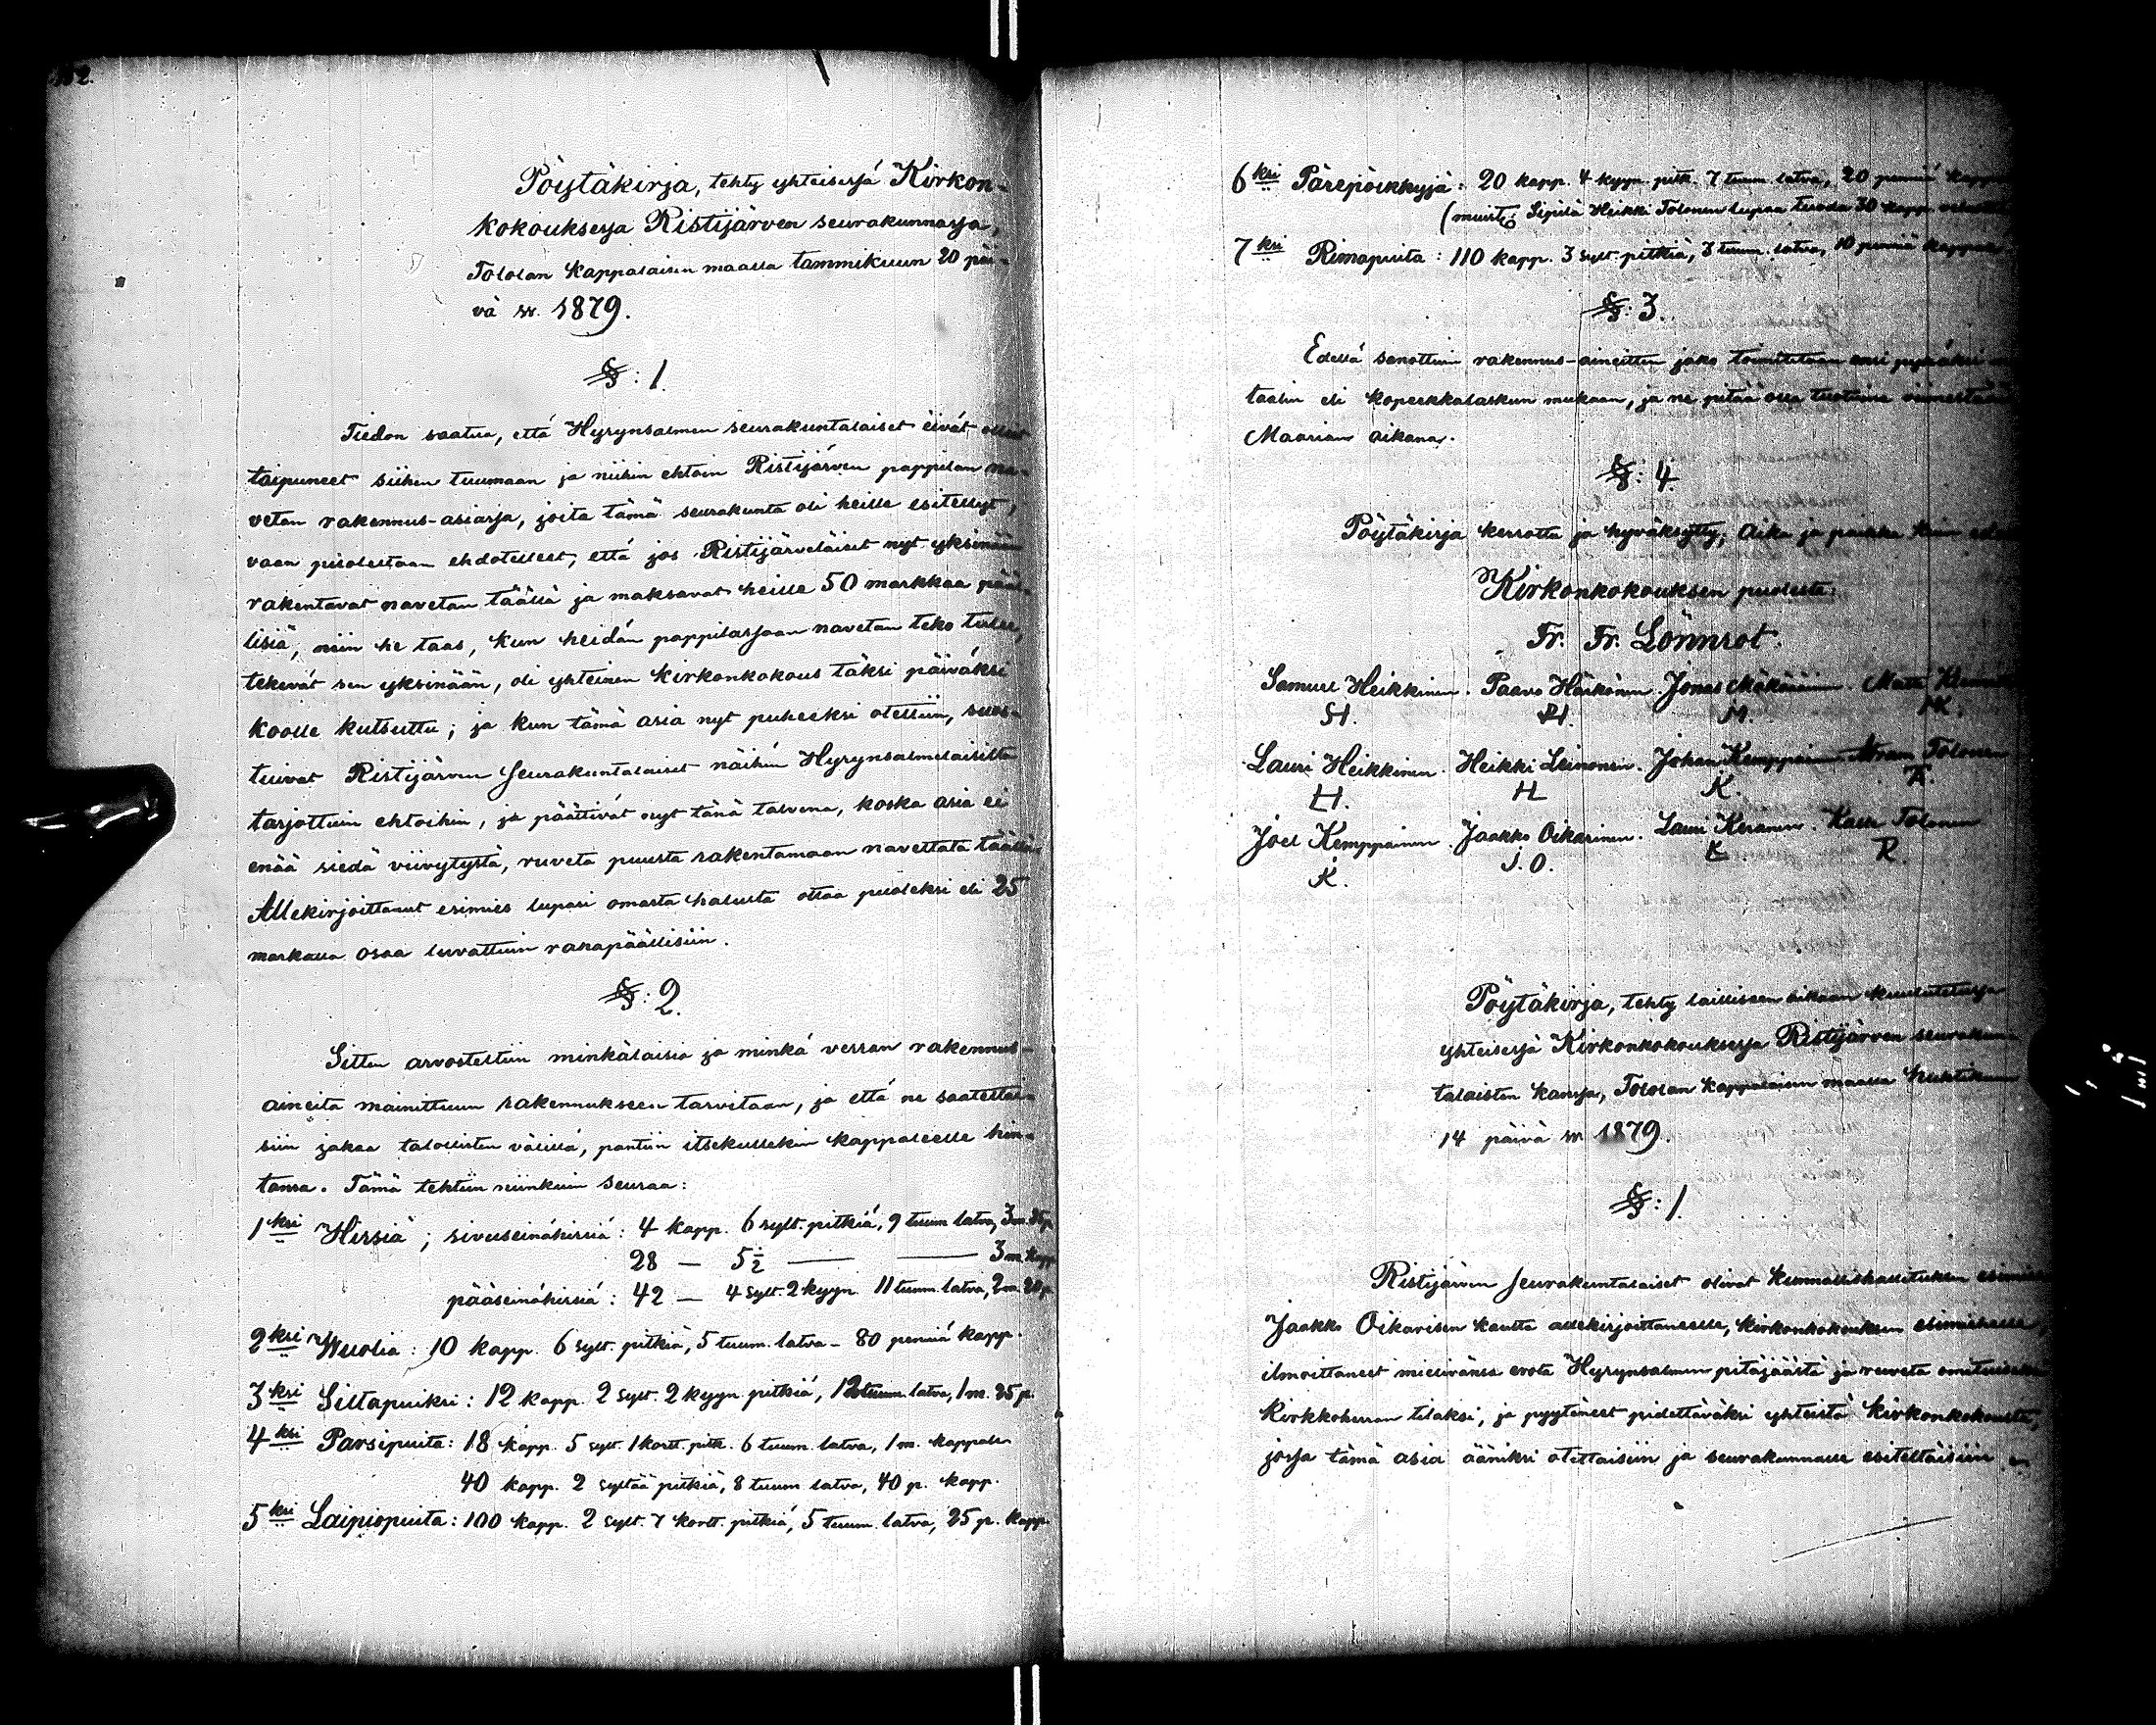 Pöytäkirja, tehty yhteisessä Kirkon-
kokouksessa Ristijärven seurakunnassa,
Tololan Kappalaisen maalla tammikuun 20 päi-
vä v. 1879.
§: 1.
Tiedon saatua, että Hyrynsalmen seurakuntalaiset eivät olleet
taipuneet siihen tuumaan ja niihin ehtoin Ristijärven pappilan na-
vetan rakennus-asiassa, joita tämä seurakunta oli heille esitellyt,
vaan puolestaan ehdotelleet, että jos Ristijärveläiset nyt yksinään
rakentavat navetan täällä ja maksavat heille 50 markkaa pääl-
lisiä, niin he taas, kun heidän pappilassaan navetan teko tulee,
tekevät sen yksinään, oli yhteinen kirkonkokous täksi päiväksi
koolle kutsuttu; ja kun tämä asia nyt puheeksi otettiin, suos-
tuivat Ristijärven seurakuntalaiset näihin Hyrynsalmelaisilta
tarjottuin ehtoihin, ja päättivät nyt tänä talvena, koska asia ei
enää siedä viivytystä, ruveta puusta rakentamaan navettata täällä.
Allekirjoittanut esimies lupasi omasta halusta ottaa puoleksi eli 25
markalla osaa luvattuin rahapäällisiin.
§: 2.
Sitten arvosteltiin minkälaisia ja minkä verran rakennus-
aineita mainittuun rakennukseen tarvitaan, ja että ne saatettai-
siin jakaa talollisten välillä, pantiin itsekullekin kappaleelle hin-
tansa. Tämä tehtiin niinkuin seuraa:
1ksi Hirsiä; sivuseinähirsiä: 4 kapp. 6 sylt. pitkiä, 9 tuum. latva, 3 m. 35 p.
28 — 5½ — — 3 m. kapp
pääseinähirsiä: 42 — 4 sylt. 2 kyyn. 11 tuum. latva, 2 m. 20 p.
2ksi Wuolia: 10 kapp. 6 sylt. pitkiä, 5 tuum. latva - 80 penniä kapp.
3ksi Siltapuiksi: 12 kapp. 2 sylt. 2 kyyn pitkiä, 12 tuum. latva, 1 m. 25 p.
4ksi Parsipuita: 18 kapp. 5 sylt. 1 kortt. pitk. 6 tuum. latva, 1 m. kappale
40 kapp. 2 syltää pitkiä, 8 tuum. latva, 40 p. kapp.
5ksi Laipiopuita: 100 kapp. 2 sylt. 7 kortt. pitkiä, 5 tuum. latva, 25 p. kapp.
6ksi Pärepöikkyjä: 20 kapp. 4 kyyn. pitk. 7 tuum. latva, 20 penniä kapp
(muist. Sipilä Heikki Tolonen lupaa tuoda 30 kapp.
7ksi Rimapuita: 110 kapp. 3 sylt. pitkiä, 3 tuum. latva, 10 penniä kappale
§: 3.
Edellä sanottuin rakennus-aineitten jako toimitetaan ensi
taalin eli kopeekkalaskun mukaan, ja ne pitää olla tuotuina viimestään
Maarian aikana.
§: 4.
Pöytäkirja kerrottu ja hyväksytty; Aika ja paikka kuin
Kirkonkokouksen puolesta:
Fr. Fr. Lönnrot.
Samuel Heikkinen. Paavo Härkönen. Jonas Mäkäräinen. Matti
S.H. P.H. M. M.K.
Lauri Heikkinen. Heikki Leinonen. Johan Kemppainen. Abram Tolonen
L.H. H.L. K. A.
Joel Kemppainen. Jaakko Oikarinen. Lauri Keränen. Kalle Tolonen
K. J.O. K. K.
Pöytäkirja, tehty lailliseen aikaan kuulutetussa
yhteisessä Kirkonkokouksessa Ristijärven seurakun-
talaisten kanssa, Tololan kappalaisen maalla huhtikuun
14 päivä v 1879.
§: 1.
Ristijärven seurakuntalaiset olivat kunnallishallituksen esimies
Jaakko Oikarisen kautta allekirjoittaneelle, kirkonkokouksen esimiehelle,
ilmoittaneet mielivänsä erota Hyrynsalmen pitäjäästä ja ruveta
Kirkkoherran tilaksi, ja pyytäneet pidettäväksi yhteistä kirkonkokousta,
jossa tämä asia ääniksi otettaisiin ja seurakunnalle esiteltäisiin